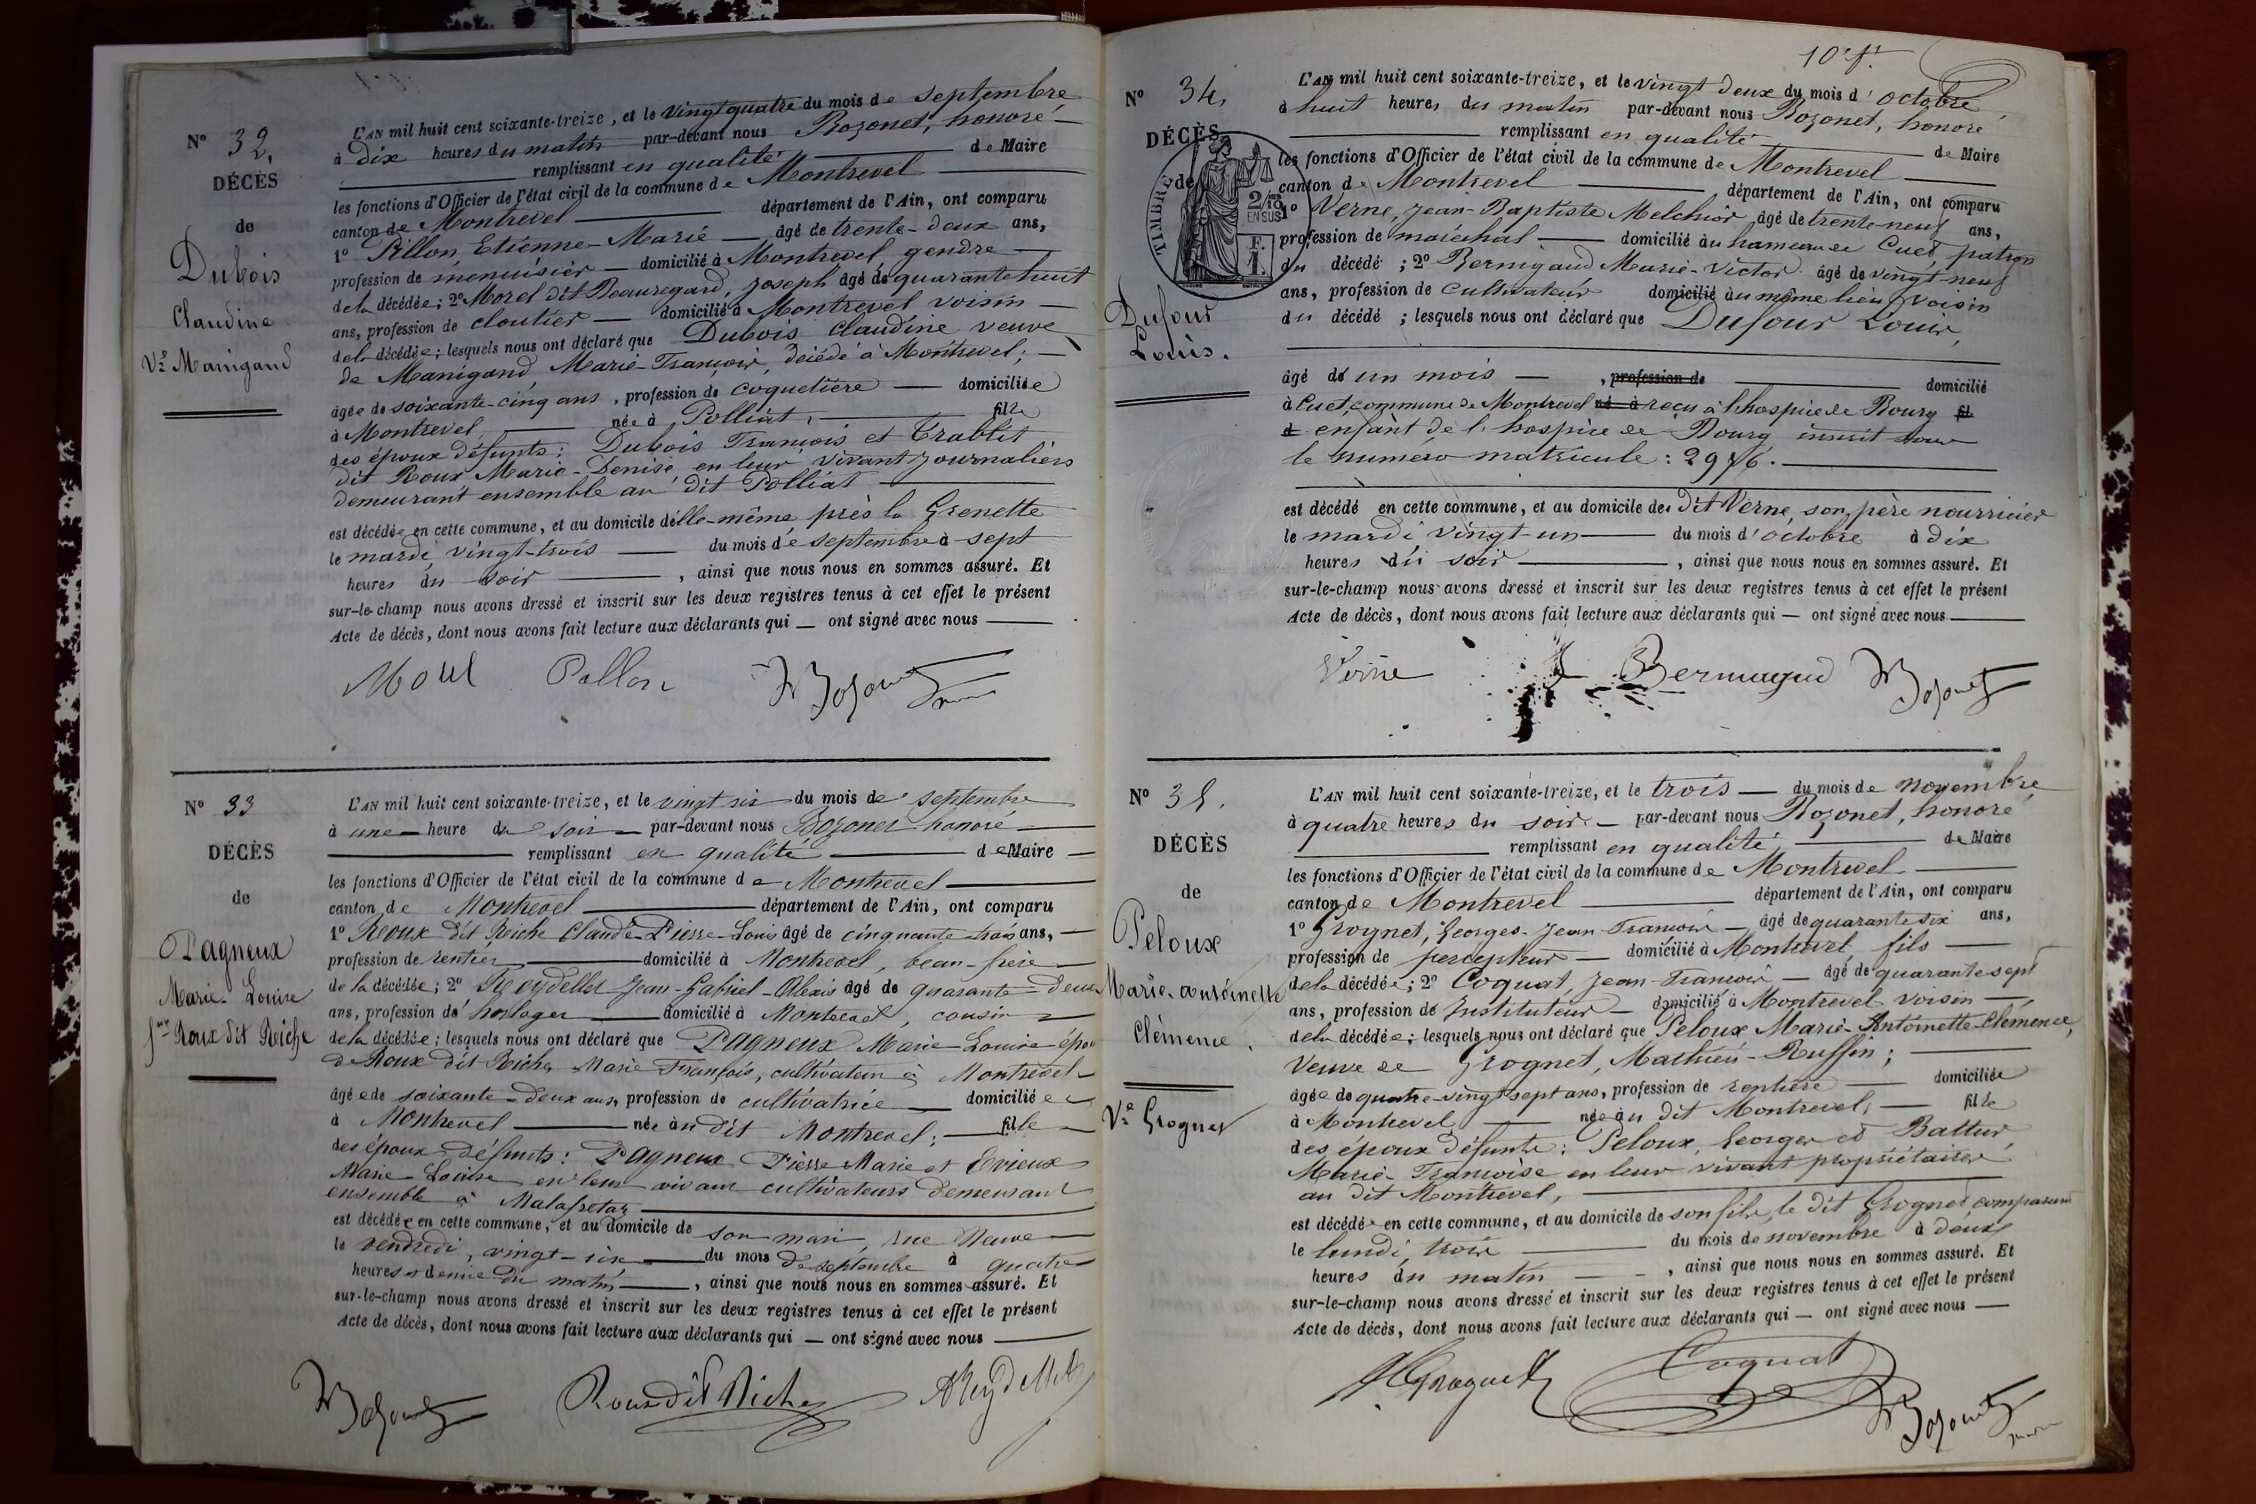 N° 32.
DÉCÈS
de
Dubois
Claudine
Ve Manigand
L'AN mil huit cent soixante-treize, et le vingt quatre du mois de septembre
à dix heures du matin par-devant nous Bozonet, honoré
remplissant en qualité de Maire
les fonctions d'Officier de l'état civil de la commune de Montrevel
canton de Montrevel département de l'Ain, ont comparu
1° Pillon, Etienne-Marie âgé de trente-deux ans,
profession de menuisier domicilié à Montrevel, gendre
de la décédée; 2° Morel dit Beauregard, Joseph âgé de quarante huit
ans, profession de cloutier domicilié à Montrevel, voisin
de la décédée; lesquels nous ont déclaré que Dubois Claudine veuve
de Manigand, Marie-François, décédé à Montrevel;
âgée de soixante-cinq ans, profession de coquetière domiciliée
à Montrevel née à Polliat, fille
des époux défunts: Dubois François et Trablit
dit Roux Marie-Denise en leur vivant journaliers
demeurant ensemble au dit Polliat
est décédée en cette commune, et au domicile d'elle-même près la Grenette
le mardi, vingt-trois du mois de septembre à sept
heures du soir, ainsi que nous nous en sommes assuré. Et
sur-le-champ nous avons dressé et inscrit sur les deux registres tenus à cet effet le présent
Acte de décès, dont nous avons fait lecture aux déclarants qui — ont signé avec nous
Morel Pillon Bozonet
N° 33
DÉCÈS
de
Pagneux
Marie-Louise
fme Roux dit Riche
L'AN mil huit cent soixante-treize, et le vingt six du mois de septembre
à une heure du soir par-devant nous Bozonet honoré
remplissant en qualité de Maire
les fonctions d'Officier de l'état civil de la commune de Montrevel
canton de Montrevel département de l'Ain, ont comparu
1° Roux dit Riche Claude-Pierre-Louis âgé de cinquante trois ans,
profession de rentier domicilié à Montrevel, beau-frère
de la décédée; 2° Reydellet Jean-Gabriel-Alexis âgé de quarante-deux
ans, profession de horloger domicilié à Montrevel, cousin
de la décédée; lesquels nous ont déclaré que Pagneux Marie-Louise épou
de Roux dit Riche, Marie François, cultivateur à Montrevel
âgée de soixante-deux ans, profession de cultivatrice domiciliée
à Montrevel née au dit Montrevel; fille
des époux défunts: Pagneux Pierre Marie et Evieux
Marie-Louise en leur vivant cultivateurs demeurant
ensemble à Malafretaz
est décédée en cette commune, et au domicile de son mari, rue Neuve
le vendredi, vingt-six du mois de septembre à quatre
heures et demie du matin, ainsi que nous nous en sommes assuré. Et
sur-le-champ nous avons dressé et inscrit sur les deux registres tenus à cet effet le présent
Acte de décès, dont nous avons fait lecture aux déclarants qui — ont signé avec nous
Bozonet Roux dit Riche AReydellet
10e ft
N° 34.
DÉCÈS
de
TIMBRE
2/10 EN SUS
1 F.
Dufour
Louis.
L'AN mil huit cent soixante-treize, et le vingt deux du mois d'octobre
à huit heures du matin par-devant nous Bozonet, honoré
remplissant en qualité de Maire
les fonctions d'Officier de l'état civil de la commune de Montrevel
canton de Montrevel département de l'Ain, ont comparu
1° Verne, Jean-Baptiste Melchior âgé de trente-neuf ans,
profession de maréchal domicilié au hameau de Cuet, patron
du décédé; 2° Bernigaud Marie-Victor âgé de vingt-neuf
ans, profession de cultivateur domicilié au même lieu, voisin
du décédé; lesquels nous ont déclaré que Dufour Louis,
âgé de un mois, profession de domicilié
à Cuet, commune de Montrevel né à reçu à l'hospice de Bourg fil
d enfant de l'hospice de Bourg inscrit sous
le numéro matricule: 2976.
est décédé en cette commune, et au domicile des dit Verne, son père nourricier
le mardi vingt-un du mois d'octobre à dix
heures du soir, ainsi que nous nous en sommes assuré. Et
sur-le-champ nous avons dressé et inscrit sur les deux registres tenus à cet effet le présent
Acte de décès, dont nous avons fait lecture aux déclarants qui — ont signé avec nous
Verne Bernigaud Bozonet
N° 35.
DÉCÈS
de
Peloux
Marie-antoinette
Clémence.
Ve Grognet
L'AN mil huit cent soixante-treize, et le trois du mois de novembre
à quatre heures du soir par-devant nous Bozonet, honoré
remplissant en qualité de Maire
les fonctions d'Officier de l'état civil de la commune de Montrevel
canton de Montrevel département de l'Ain, ont comparu
1° Grognet, Georges-Jean-François âgé de quarante six ans,
profession de percepteur domicilié à Montrevel, fils
de la décédée; 2° Coquat, Jean-François âgé de quarante sept
ans, profession de Instituteur domicilié à Montrevel voisin
de la décédée; lesquels nous ont déclaré que Peloux Marie-Antoinette-Clémence,
veuve de Grognet, Mathieu-Ruffin;
âgée de quatre-vingt sept ans, profession de rentière domiciliée
à Montrevel née au dit Montrevel, fille
des époux défunts: Peloux, Georges et Battur,
Marie-Françoise en leur vivant propriétaires
au dit Montrevel,
est décédée en cette commune, et au domicile de son fils, le dit Grognet comparant
le lundi, trois du mois de novembre à deux
heures du matin, ainsi que nous nous en sommes assuré. Et
sur-le-champ nous avons dressé et inscrit sur les deux registres tenus à cet effet le présent
Acte de décès, dont nous avons fait lecture aux déclarants qui — ont signé avec nous
Grognet Coquat Bozonet